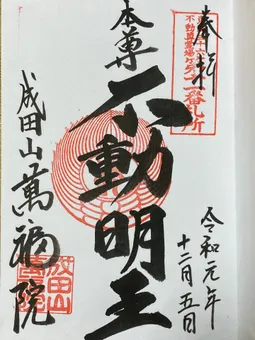 奉拝
不動尊霊場
十一番札所
本尊
不動明王
令和元年
十二月五日
成田山萬福院
成田山